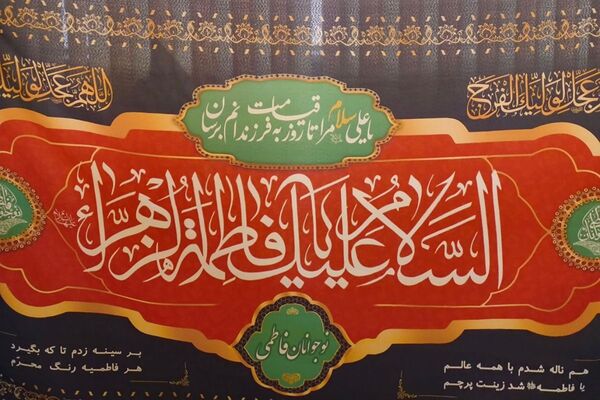 اللهم عجل لولیک
عجل لولیک الفرج
یا علی سلام مرا تا روز قیامت به فرزندانم برسان
السلام علیک یا فاطمة الزهراء
نوجوانان فاطمی
هم ناله شدم با همه عالم
یا فاطمه شد زینت پرچم
بر سینه زدم تا که بگیرد
هر فاطمیه رنگ محرّم